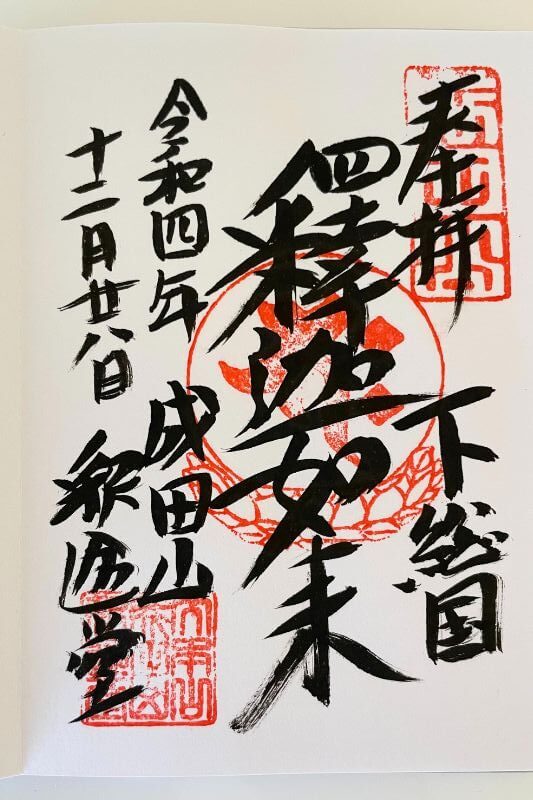 奉拝
下総国
釋迦如来
令和四年
成田山
十二月廿八日
釈迦堂